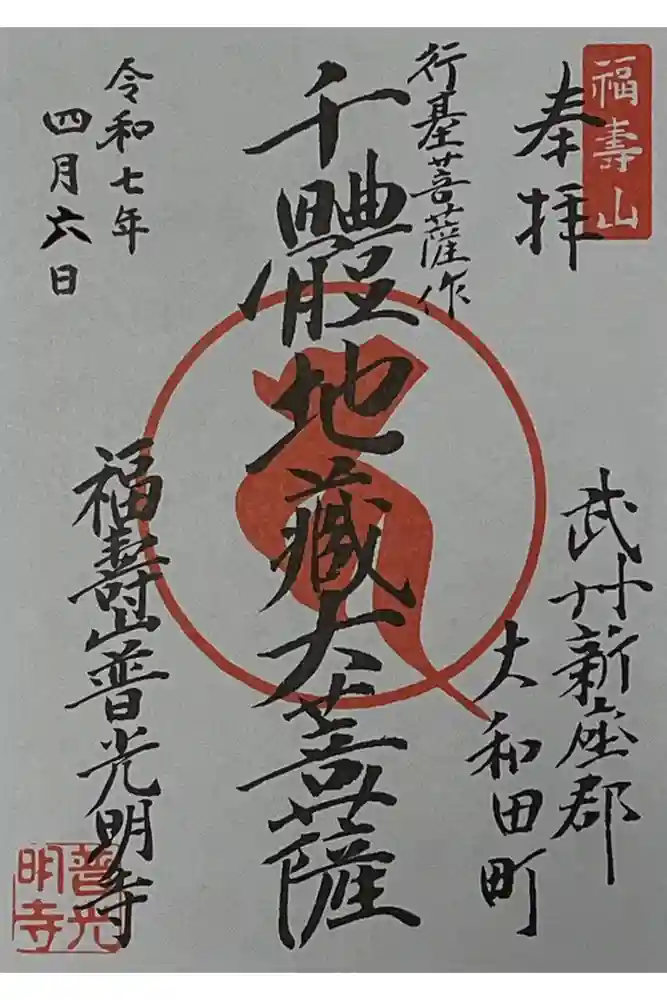 福壽山
奉拝
武州新座郡
大和田町
行基菩薩作
千體地蔵大菩薩
福壽山普光明寺
普光
明寺
令和七年
四月六日